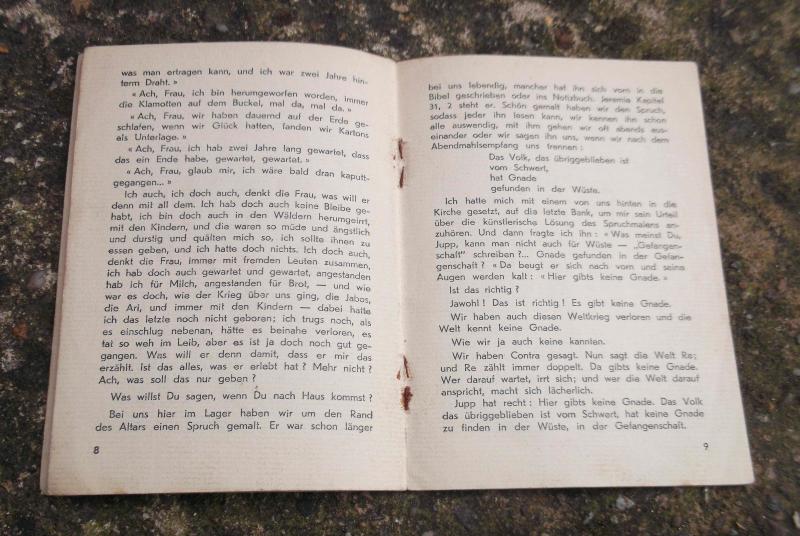 was man ertragen kann, und ich war zwei Jahre hin-
term Draht. »
« Ach, Frau, ich bin herumgeworfen worden, immer
die Klamotten auf dem Buckel, mal da, mal da. »
« Ach, Frau, wir haben dauernd auf der Erde ge-
schlafen, wenn wir Glück hatten, fanden wir Kartons
als Unterlage. »
« Ach, Frau, ich hab zwei Jahre lang gewartet, dass
das ein Ende habe, gewartet, gewartet. »
« Ach, Frau, glaub mir, ich wäre bald dran kaputt-
gegangen... »
Ich auch, ich doch auch, denkt die Frau, was will er
denn mit all dem. Ich hab doch auch keine Bleibe ge-
habt, ich bin doch auch in den Wäldern herumgeirrt,
mit den Kindern, und die waren so müde und ängstlich
und durstig und quälten mich so, ich sollte ihnen zu
essen geben, und ich hatte doch nichts. Ich doch auch,
denkt die Frau, immer mit fremden Leuten zusammen,
ich hab doch auch gewartet und gewartet, angestanden
hab ich für Milch, angestanden für Brot, — und wie
war es doch, wie der Krieg über uns ging, die Jabos,
die Ari, und immer mit den Kindern — dabei hatte
ich das letzte noch nicht geboren; ich trugs noch, als
es einschlug nebenan, hätte es beinahe verloren, es
tat so weh im Leib, aber es ist ja doch noch gut ge-
gangen. Was will er denn damit, dass er mir das
erzählt. Ist das alles, was er erlebt hat? Mehr nicht?
Ach, was soll das nur geben?
Was willst Du sagen, wenn Du nach Haus kommst?
Bei uns hier im Lager haben wir um den Rand
des Altars einen Spruch gemalt. Er war schon länger
8
bei uns lebendig, mancher hat ihn sich vorn in die
Bibel geschrieben oder ins Notizbuch. Jeremia Kapitel
31, 2 steht er. Schön gemalt haben wir den Spruch,
sodass jeder ihn lesen kann, wir kennen ihn schon
alle auswendig, mit ihm gehen wir oft abends aus-
einander oder wir sagen ihn uns, wenn wir nach dem
Abendmahlsempfang uns trennen :
Das Volk, das übriggeblieben ist
vom Schwert,
hat Gnade
gefunden in der Wüste.
Ich hatte mich mit einem von uns hinten in die
Kirche gesetzt, auf die letzte Bank, um mir sein Urteil
über die künstlerische Lösung des Spruchmalens an-
zuhören. Und dann fragte ich ihn : « Was meinst Du,
Jupp, kann man nicht auch für Wüste — „Gefangen-
schaft" schreiben ?... Gnade gefunden in der Gefan-
genschaft ? « Da beugt er sich nach vorn und seine
Augen werden kalt : « Hier gibts keine Gnade. »
Ist das richtig ?
Jawohl ! Das ist richtig ! Es gibt keine Gnade.
Wir haben auch diesen Weltkrieg verloren und die
Welt kennt keine Gnade.
Wie wir ja auch keine kannten.
Wir haben Contra gesagt. Nun sagt die Welt Re;
und Re zählt immer doppelt. Da gibts keine Gnade.
Wer darauf wartet, irrt sich; und wer die Welt darauf
anspricht, macht sich lächerlich.
Jupp hat recht : Hier gibts keine Gnade. Das Volk
das übriggeblieben ist vom Schwert, hat keine Gnade
zu finden in der Wüste, in der Gefangenschaft.
9